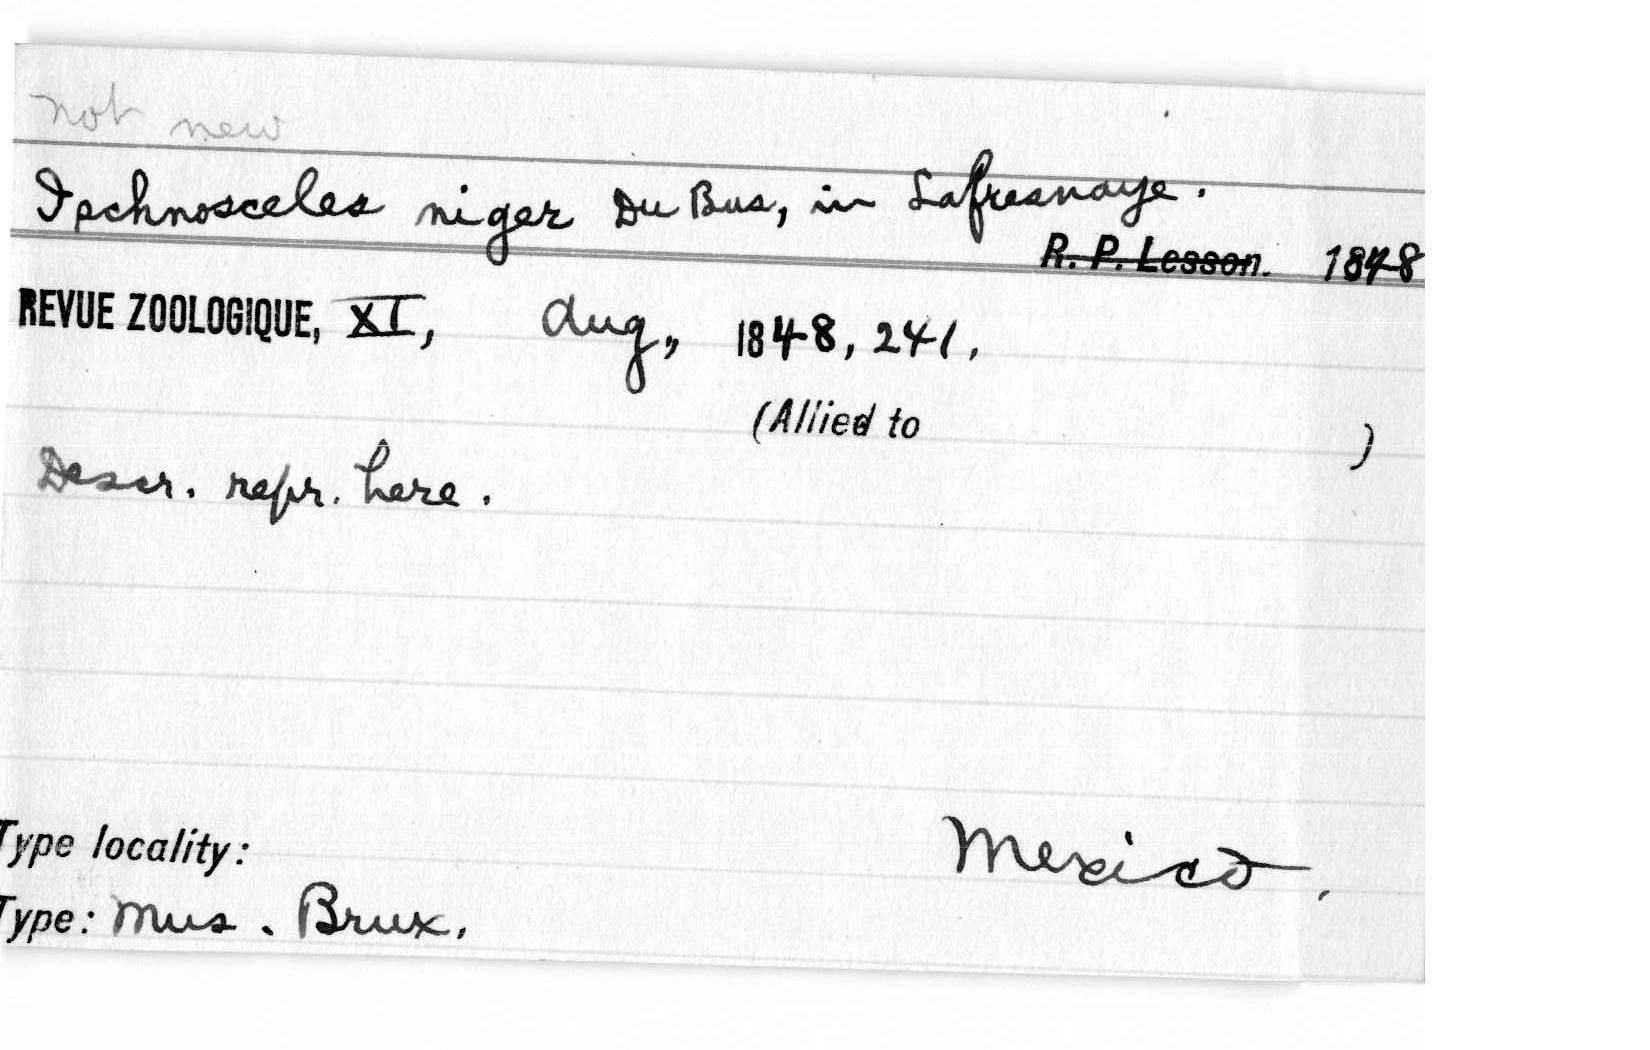 not new
Ischnosceles niger Du Bus, in Lafresnaye.
R. P. Lesson. 1848
REVUE ZOOLOGIQUE, XI, Aug., 1848, 241.
(Allied to )
Descr. repr. here.
Type locality: Mexico.
Type: Mus. Brux.